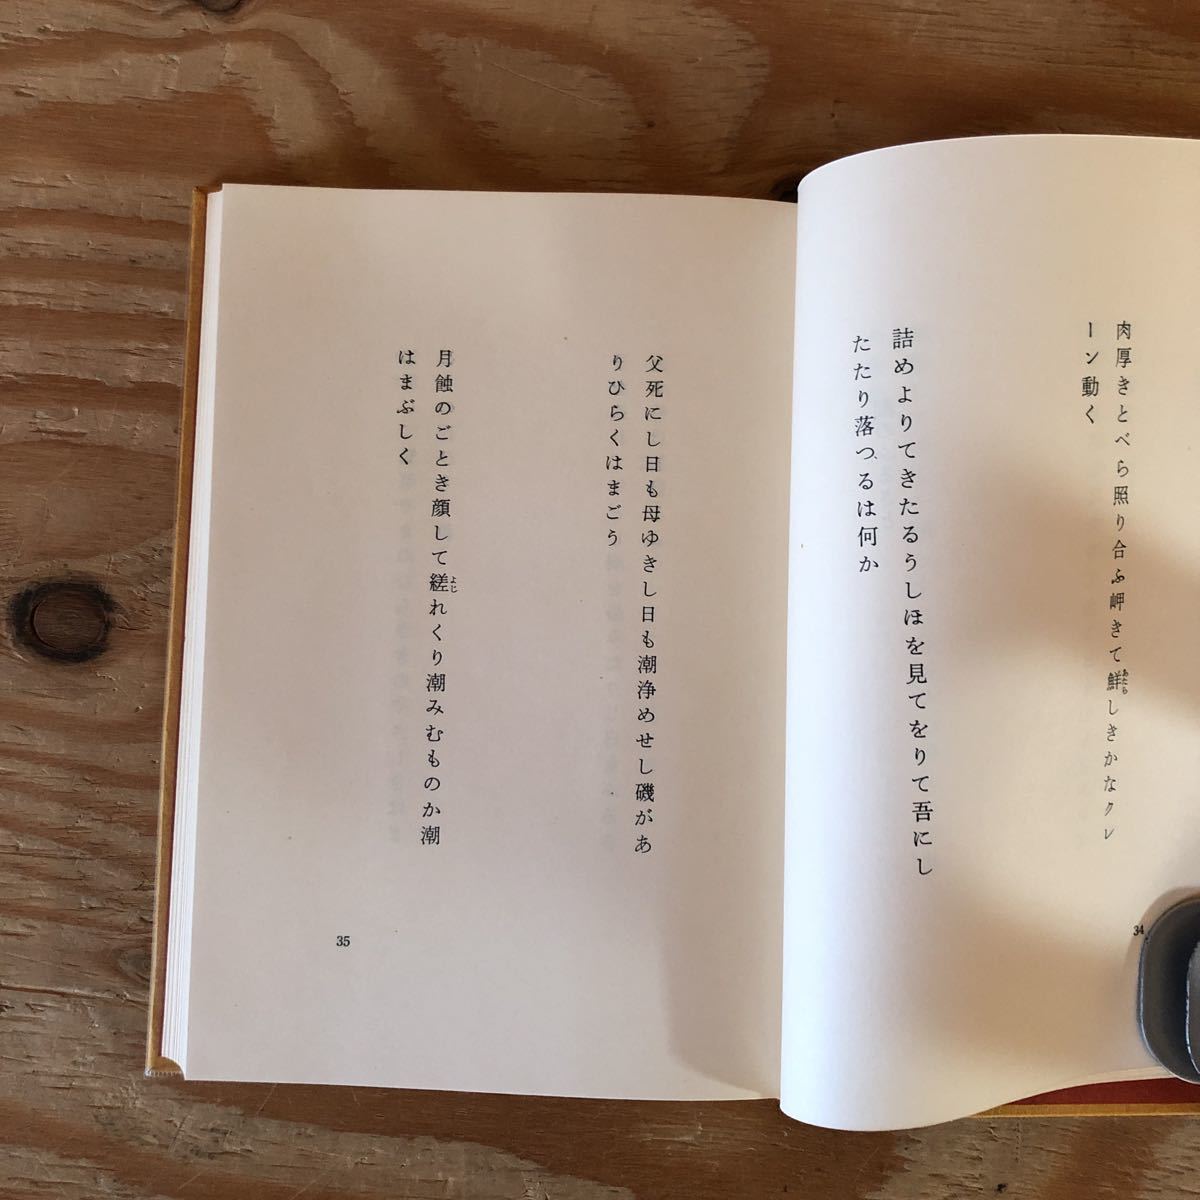 肉厚きとべら照り合ふ岬きて鮮しきかなクレ
あたら
ーン動く
詰めよりてきたるうしほを見てをりて吾にし
たたり落つるは何か
34
父死にし日も母ゆきし日も潮浄めせし磯があ
りひらくはまごう
月蝕のごとき顔して縒れくり潮みむものか潮
よじ
はまぶしく
35